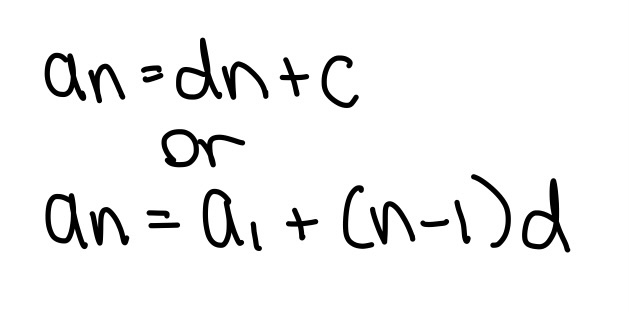 an = dn + c
or
an = a₁ + (n-1)d